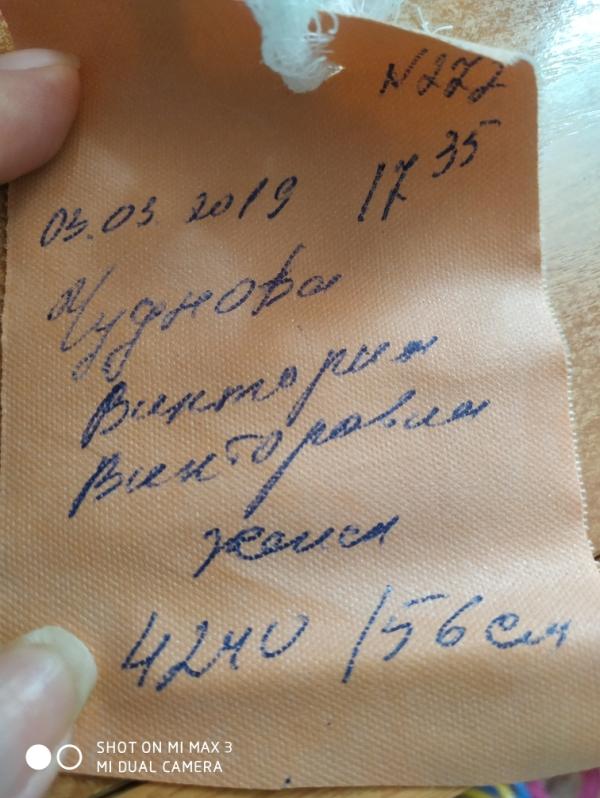 N272
03.03.2019 17 35
Чуднова
Виктория
Викторовна
женск
4240 / 56 см
SHOT ON MI MAX 3
MI DUAL CAMERA